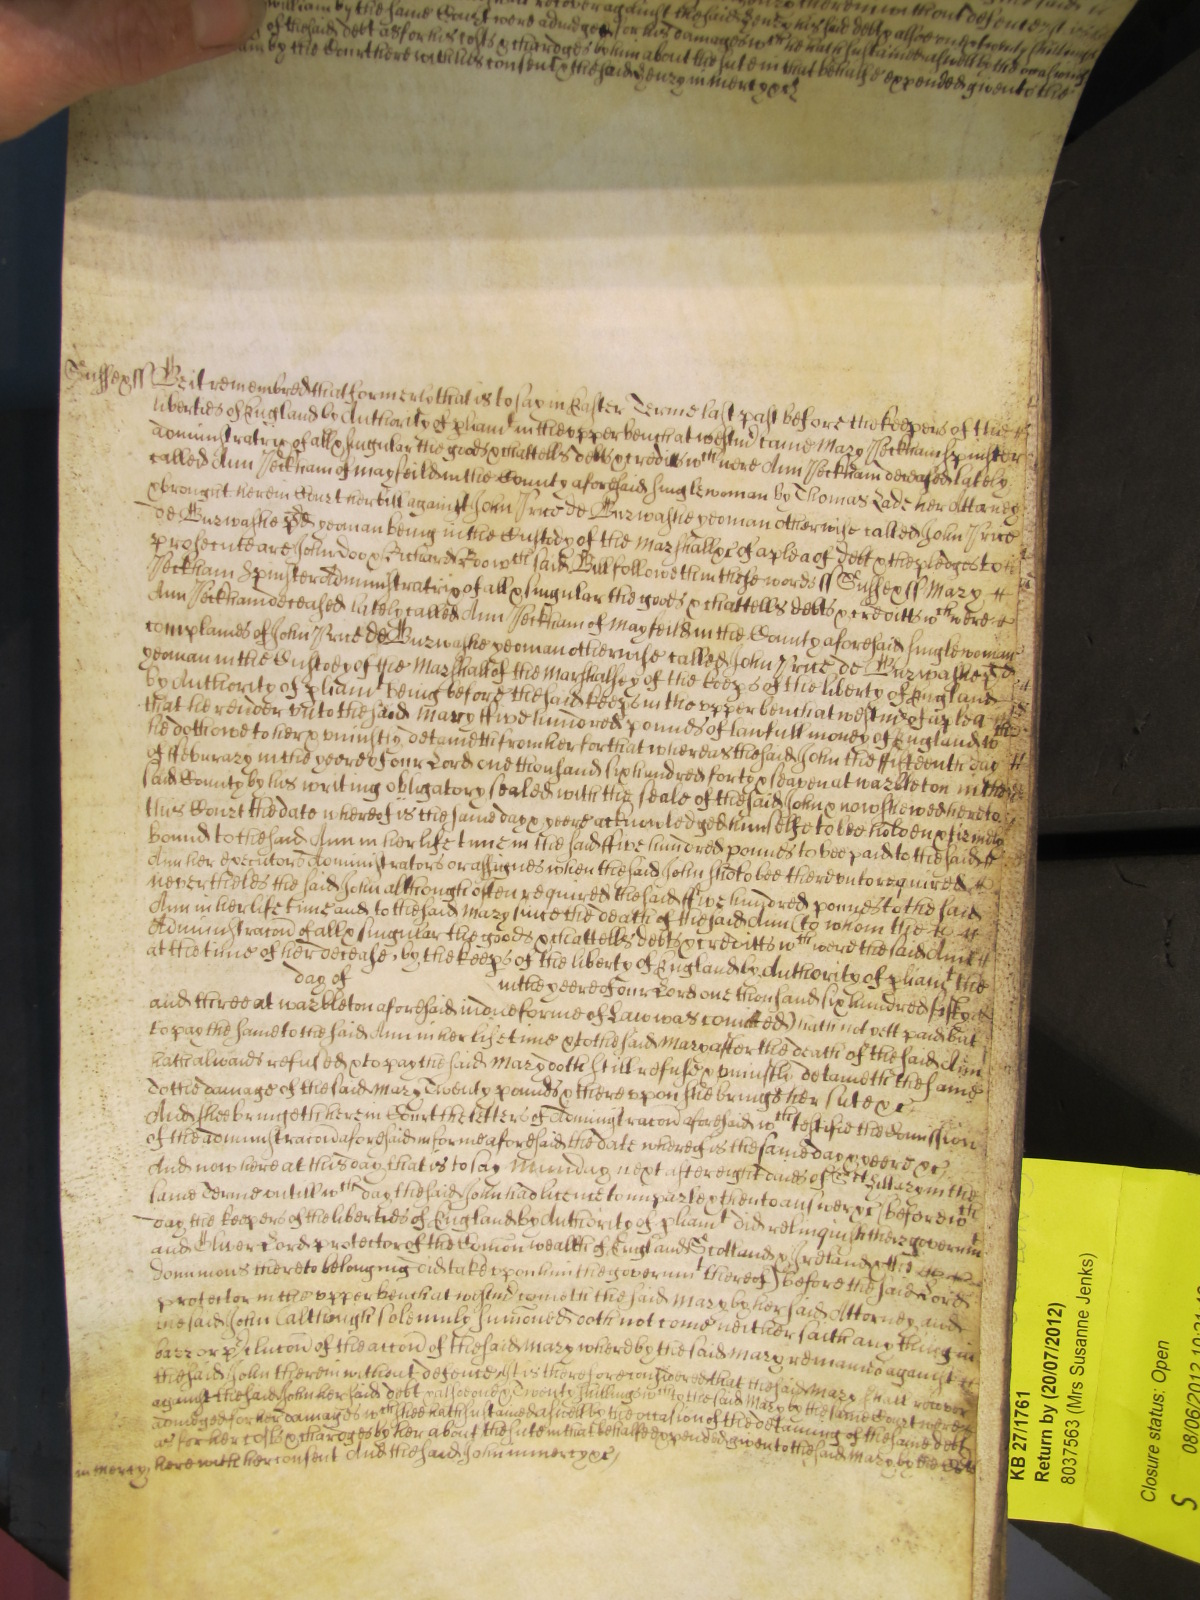 william by the same Court were adiudged for his damages wch he hath susteined aswell by the occasion
of thesaid debt as for his costs & chardges by him about the sute in that behalfe expended given to the
by the Court here with his consent & the said Henry in mercy &c
Sussex ss Be it remembred that formerly that is to say in Easter Terme last past before the keepers of the
liberties of England by Authority of pliamt in the upper bench at Westmr came Mary Peckham Spinster
Administratrix of all & singular the goods & chattells debts & creditts wch were Ann Peckham deceased lately
called Ann Peckham of Mayfeild in the County aforesaid singlewoman by Thomas Lade her Attorney
& brought here in Court her bill against John Price de Burwashe yeoman otherwise called John Price
de Burwashe yeoman being in the Custody of the Marshall &c of a plea of debt & the pledges to
prosecute are John Doo & Richard Roo wch said Bill followeth in these words ss Sussex ss Mary
Peckham Spinster Administratrix of all & singular the goods & chattells debts & creditts wch were
Ann Peckham deceased lately called Ann Peckham of Mayfeild in the County aforesaid singlewoman
complaines of John Price de Burwashe yeoman otherwise called John Price de Burwashe
yeoman in the Custody of the Marshall of the Marshalsey of the keeps of the liberty of England
by Authority of pliamt being before the said keeps in the upper bench at Westmr of a plea
that he render unto the said Mary ffive hundred pounds of lawfull money of England wch
he doth owe to her & uniustly deteineth from her for that whereas the said John the ffifteenth day
of ffebruary in the yeere of our Lord one thousand six hundred forty & seaven at Warbleton in the
said County by his writing obligatory sealed with the seale of the said John & now shewed here to
this Court the date whereof is the same day & yeere acknowledged himselfe to bee holden & firmely
bound to the said Ann in her life time in the said ffive hundred pounds to bee paid to the said
Ann her executors Administrators or assignes when the said John shold bee thereunto required
nevertheles the said John although often required the said ffive hundred pounds to the said
Ann in her life time and to the said Mary since the death of the said Ann (to whom the
Administracon of all & singular the goods & chattells debts & creditts wch were the said Ann
at the time of her decease, by the keeps of the liberty of England by Authority of pliamt the
day of in the yeere of our Lord one thousand six hundred fifty
and three at Warbleton aforesaid in due forme of Law was comitted) hath not yett paid but
to pay the same to the said Ann in her life time & to the said Mary after the death of the said Ann
hath alwaies refused & to pay the said Mary doth still refuse & uniustly deteineth the same
to the damage of the said Mary Twenty pounds & thereuppon she brings her sute &c
And shee bringeth here in Court the letters of Administracon aforesaid wch testifie the Comission
of the administracon aforesaid in forme aforesaid the date whereof is the same day & yeere &c
And now here at this day that is to say Munday next after eight daies of St Hillary in the
same Terme untill wch day the said John had licence to imparle & then to answer &c (before wch
day the keepers of the liberties of England by Authority of pliamt did relinquish there governmt
and Oliver Lord protector of the Comon wealth of England Scotland & Ireland & the
dominions thereto belonging did take upon him the governmt thereof) before the said Lord
protector in the upper bench at Westmr cometh the said Mary by her said Attorney and
the said John (although solemnly sumoned) doth not come neither saith any thing in
barr or pclucon of the accon of the said Mary whereby the said Mary remaineth against
the said John therein without defence It is therefore considered that the said Mary shall recover
against the said John her said debt & alsoe Twenty shillings wch to the said Mary by the same Court were
adiudged for her damages wch shee hath susteined aswell by the occasion of the deteining of the same debt
as for her costs & chardges by her about the sute in that behalfe expended given to the said Mary by the
in mercy here with her consent And the said John in mercy &c
KB 27/1761
Return by (20/07/2012)
8037563 (Mrs Susanne Jenks)
Closure status: Open
S